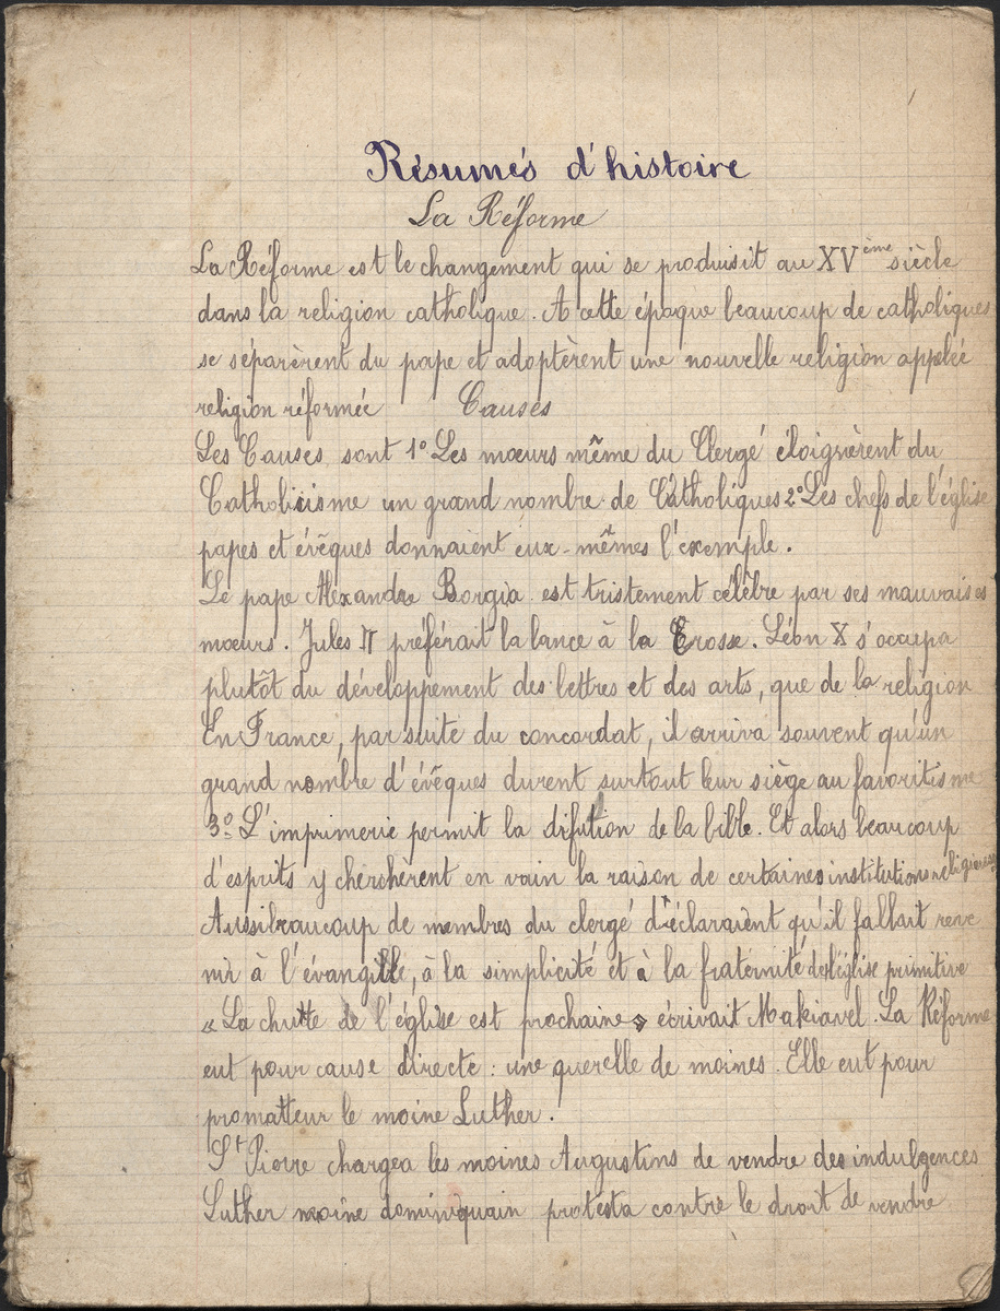 Résumés d'histoire
La Réforme
La Réforme est le changement qui se produisit au XVème siècle
dans la religion catholique. A cette époque beaucoup de catholiques
se séparèrent du pape et adoptèrent une nouvelle religion applée
religion réformée Causes
Les Causes sont 1º Les mœurs même du Clergé éloignèrent du
Catholicisme un grand nombre de Catholiques 2º Les chefs de l'église
papes et évêques donnaient eux-mêmes l'exemple.
Le pape Alexandre Borgia est tristement célèbre par ses mauvaises
mœurs. Jules II préférait la lance à la Crosse. Léon X s'occupa
plutôt du développement des lettres et des arts, que de la religion
En France, par suite du concordat, il arriva souvent qu'un
grand nombre d'évêques durent surtout leur siège au favoritisme
3º L'imprimerie permit la difution de la bible. Et alors beaucoup
d'esprits y cherchèrent en vain la raison de certaines institutions réligieuses
Aussi beaucoup de membres du clergé déclaraient qu'il fallait reve
nir à l'évangille, à la simplicité et à la fraternité de l'église primitive
« La chutte de l'église est prochaine » écrivait Makiavel. La Réforme
eut pour cause directe : une querelle de moines. Elle eut pour
promatteur le moine Luther.
St Pierre chargea les moines Augustins de vendre des indulgences
Luther moine dominiquain protesta contre le droit de vendre